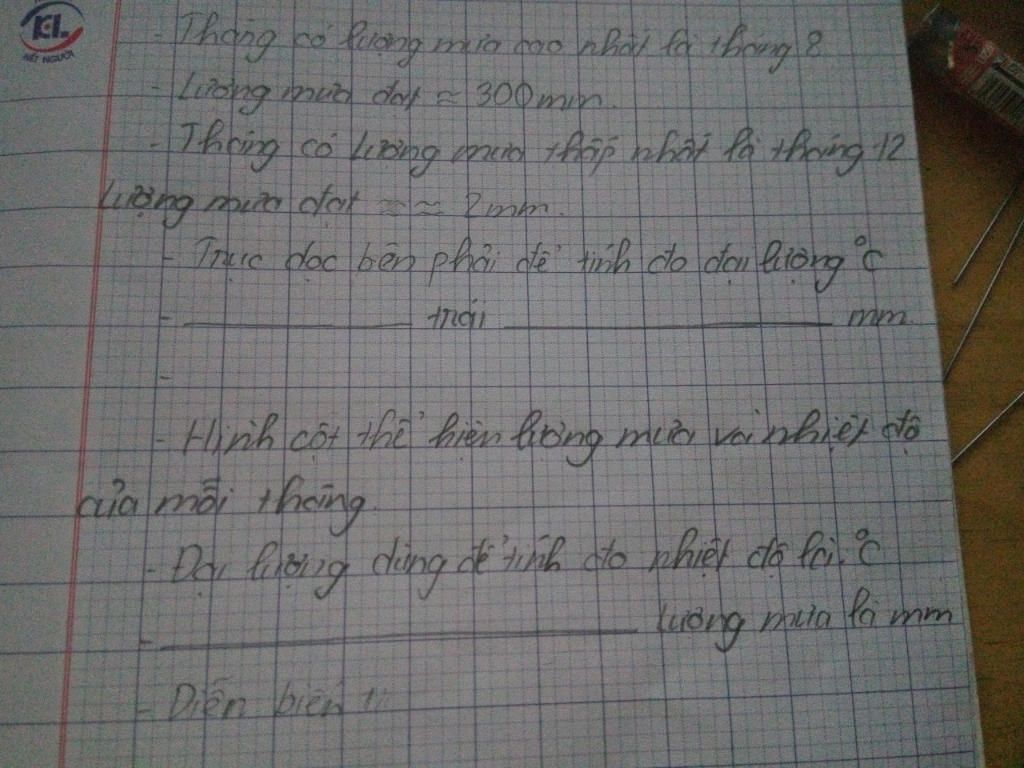 KL
NÉT NGƯỜI
- Tháng có lượng mưa cao nhất là tháng 8
- Lượng mưa đạt ≈ 300mm.
- Tháng có lượng mưa thấp nhất là tháng 12
lượng mưa đạt ≈ ≈ 2mm.
- Trục dọc bên phải để tính đo đại lượng °C
- ________ trái ____________ mm.
-
- Hình cột thể hiện lượng mưa và nhiệt độ
của mỗi tháng.
- Đại lượng dùng để tính đo nhiệt độ là °C
- ________________ lượng mưa là mm
- Diễn biến